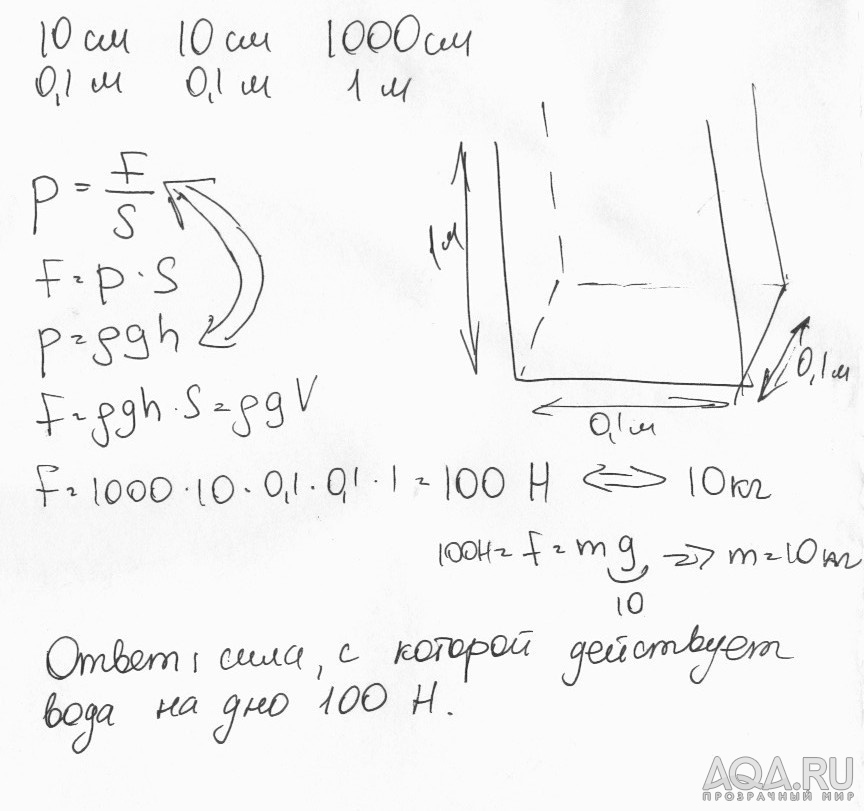 10 см 10 см 1000 см
0,1 м 0,1 м 1 м
p = F/S
F = p · S
p = ρgh
F = ρgh · S = ρgV
1м
0,1м
0,1м
F = 1000 · 10 · 0,1 · 0,1 · 1 = 100 Н ⇔ 10кг
100Н = F = mg ⇒ m = 10 кг
10
Ответ: сила, с которой действует
вода на дно 100 Н.
AQA.RU
ПРОЗРАЧНЫЙ МИР